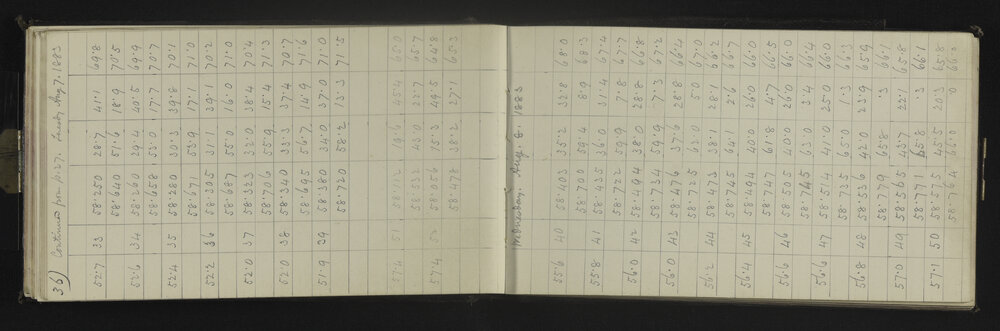 36) Continued from p. 27. Tuesday Aug 7. 1883
52.7 33 58.250 28.7 41.1 69.8
58.640 51.6 18.9 70.5
52.6 34 58.260 29.4 40.5 69.9
58.658 53.0 17.7 70.7
52.4 35 58.280 30.3 39.8 70.1
58.671 53.9 17.1 71.0
52.2 36 58.305 31.1 39.1 70.2
58.687 55.0 16.0 71.0
52.0 37 58.323 32.0 38.4 70.4
58.706 55.9 15.4 71.3
52.0 38 58.340 33.3 37.4 70.7
58.695 56.7 14.9 71.6
51.9 39 58.380 34.0 37.0 71.0
58.720 58.2 13.3 71.5
57.4 51 58.112 19.6 45.4 65.0
58.532 43.0 22.7 65.7
57.4 52 58.056 15.3 49.5 64.8
58.478 38.2 27.1 65.3
Wednesday. Aug. 8. 1883
55.6 40 58.403 35.2 32.8 68.0
58.700 59.4 8.9 68.3
55.8 41 58.425 36.0 31.4 67.4
58.722 59.9 7.8 67.7
56.0 42 58.494 38.0 28.8 66.8
58.734 59.9 7.3 67.2
56.0 43 58.476 37.6 28.8 66.4
58.725 62.0 5.0
56.2 44 58.473 38.1 28.1 66.2
58.745 64.1 2.6 66.7
56.4 45 58.494 40.0 26.0 66.0
58.747 61.8 4.7 66.5
56.6 46 58.505 40.0 26.0 66.0
58.745 63.0 3.4 66.4
56.6 47 58.514 41.0 25.0 66.0
58.755 65.0 1.3 66.3
56.8 48 58.536 42.0 23.9 65.9
58.779 65.8 .3 66.1
57.0 49 58.565 43.7 22.1 65.8
58.771 65.8 .3 66.1
57.1 50 58.575 45.5 20.3 65.8
58.764 66.0 0 66.0